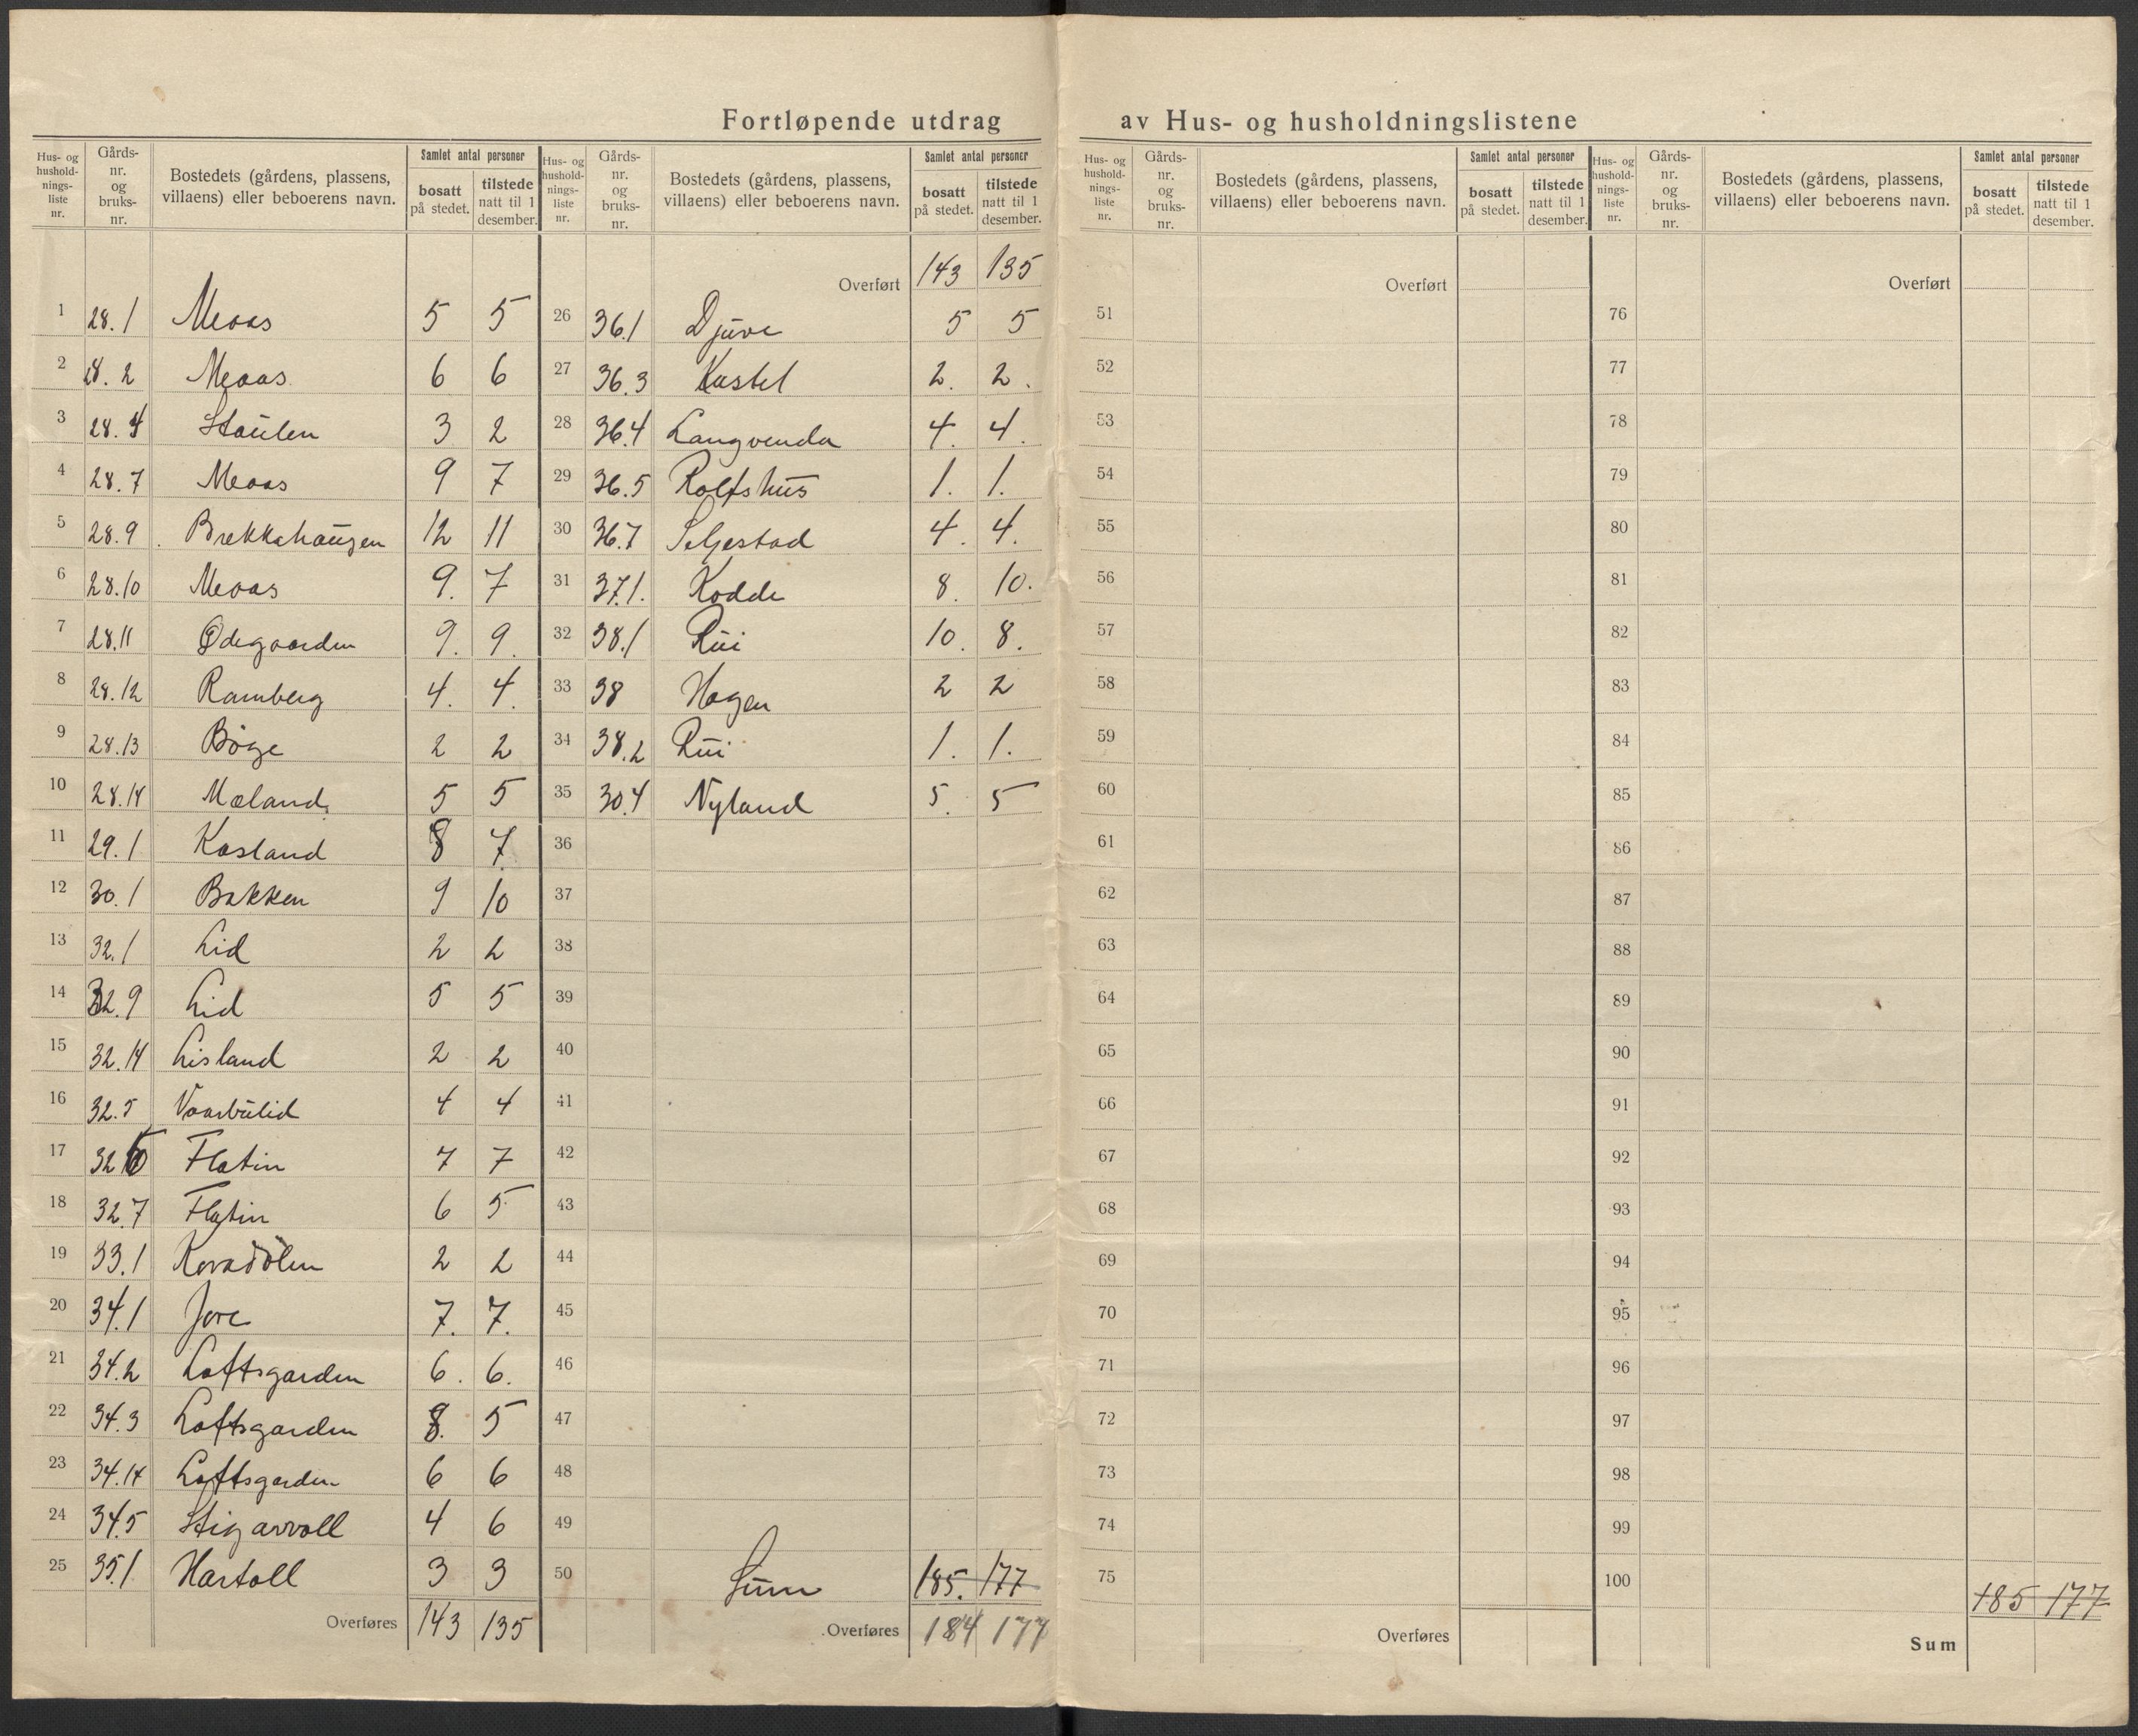 Fortløpende utdrag av Hus- og husholdningslistene
Hus- og hushold-nings-liste nr. Gårds-nr. og bruks-nr. Bostedets (gårdens, plassens, villaens) eller beboerens navn. Samlet antal personer bosatt på stedet. tilstede natt til 1 desember.
1 28.1 Meaas 5 5
2 28.2 Meaas 6 6
3 28.4 Staulen 3 2
4 28.7 Meaas 9 7
5 28.9 Brekkehaugen 12 11
6 28.10 Meaas 9. 7
7 28.11 Ødegaarden 9. 9.
8 28.12 Ramberg 4. 4.
9 28.13 Bøge 2 2
10 28.14 Mæland 5 5
11 29.1 Kasland 8 7
12 30.1 Bakken 9 10
13 32.1 Lid 2 2
14 32.9 Lid 5 5
15 32.14 Lisland 2 2
16 32.5 4 4
17 Flatin 7 7
18 32.7 Flatin 6 5
19 33.1 2 2
20 34.1 Jore 7. 7.
21 34.2 Loftsgarden 6. 6.
22 34.3 Loftsgarden 8. 5
23 34.14 Loftsgarden 6 6
24 34.5 Stigarvoll 4 6
25 35.1 Hartoll 3 3
Overføres 143 135
Hus- og hushold-nings-liste nr. Gårds-nr. og bruks-nr. Bostedets (gårdens, plassens, villaens) eller beboerens navn. Samlet antal personer bosatt på stedet. tilstede natt til 1 desember.
Overført 143 135
26 36.1 Djuve 5 5
27 36.3 Kastel 2. 2.
28 36.4 Langvenda 4. 4.
29 36.5 Rolfshus 1. 1.
30 36.7 Seljestad 4. 4.
31 37.1. Kodde 8. 10.
32 38.1 Rui 10. 8.
33 38 Hagen 2 2
34 38.2 Rui 1. 1.
35 30.4 Nyland 5. 5
36
37
38
39
40
41
42
43
44
45
46
47
48
49
50 Sum 185. 177
Overføres 184 177
Hus- og hushold-nings-liste nr. Gårds-nr. og bruks-nr. Bostedets (gårdens, plassens, villaens) eller beboerens navn. Samlet antal personer bosatt på stedet. tilstede natt til 1 desember.
Overført
51
52
53
54
55
56
57
58
59
60
61
62
63
64
65
66
67
68
69
70
71
72
73
74
75
Overføres
Hus- og hushold-nings-liste nr. Gårds-nr. og bruks-nr. Bostedets (gårdens, plassens, villaens) eller beboerens navn. Samlet antal personer bosatt på stedet. tilstede natt til 1 desember.
Overført
76
77
78
79
80
81
82
83
84
85
86
87
88
89
90
91
92
93
94
95
96
97
98
99
100
185 177
Sum